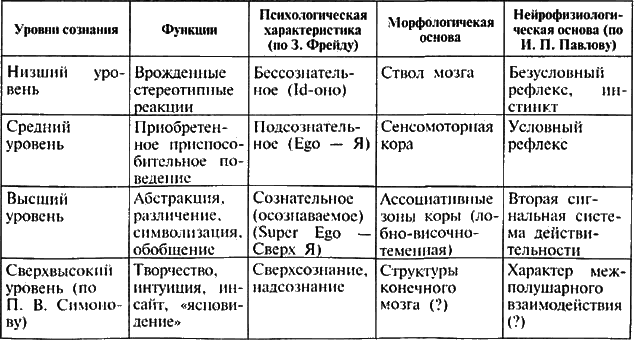 Уровни сознания
Функции
Психологическая
характеристика
(по З. Фрейду)
Морфологичекая
основа
Нейрофизиологи-
ческая основа (по
И. П. Павлову)
Низший уро-
вень
Врожденные
стереотипные
реакции
Бессознатель-
ное (Id-оно)
Ствол мозга
Безусловный
рефлекс, ин-
стинкт
Средний
уровень
Приобретен-
ное приспосо-
бительное по-
ведение
Подсознатель-
ное (Ego — Я)
Сенсомоторная
кора
Условный
рефлекс
Высший
уровень
Абстракция,
различение,
символизация,
обобщение
Сознательное
(осознаваемое)
(Super Ego —
Сверх Я)
Ассоциативные
зоны коры (ло-
бно-височно-
теменная)
Вторая сиг-
нальная систе-
ма действи-
тельности
Сверхвысокий
уровень (по
П. В. Симоно-
ву)
Творчество,
интуиция, ин-
сайт, «яснови-
дение»
Сверхсознание,
надсознание
Структуры
конечного
мозга (?)
Характер меж-
полушарного
взаимодействия
(?)